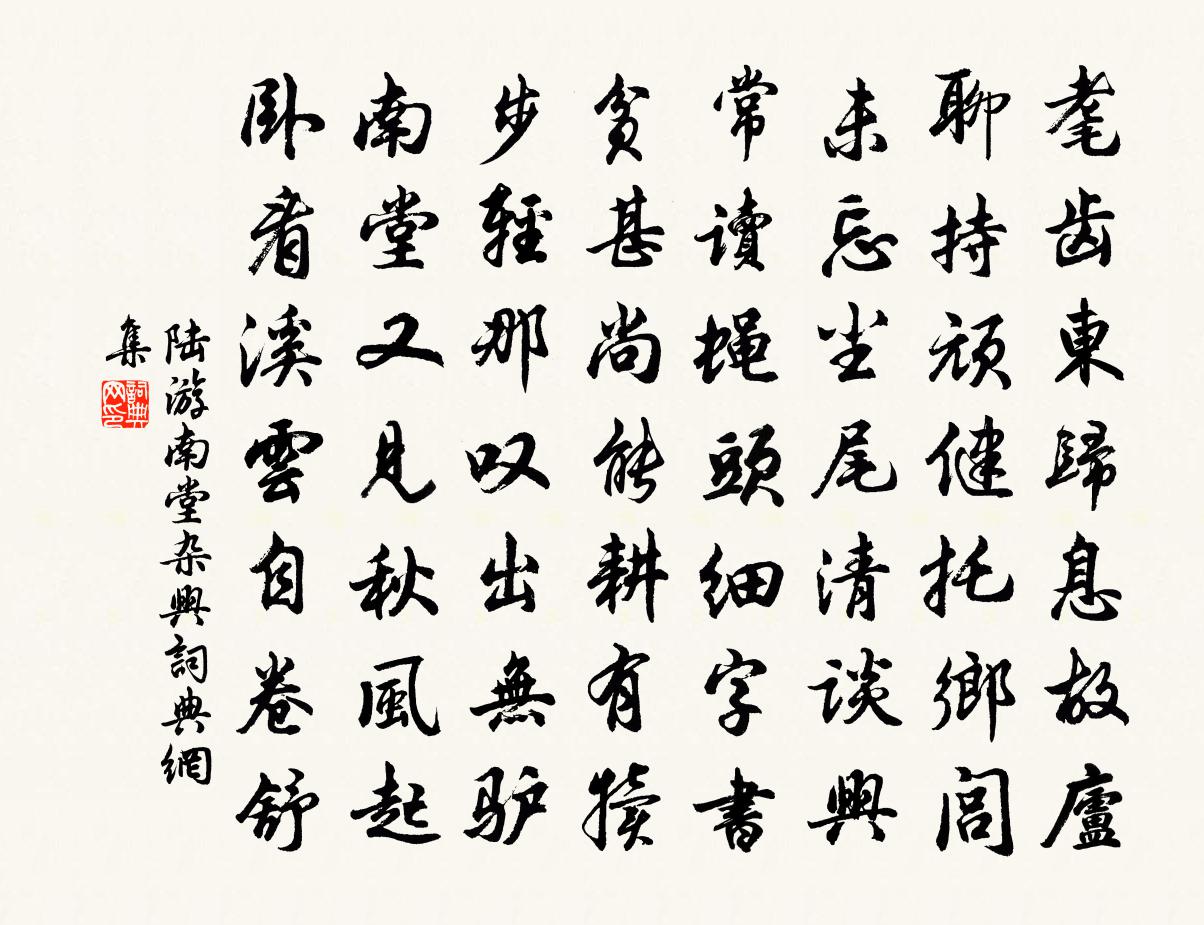 耄齿東歸息故廬
聊持頑健托鄉閭
未忘坐尾清談興
常讀蝇頭细字書
貧甚尚能耕有犢
步輕那叹出無驴
南堂又見秋風起
卧看溪雲自卷舒
陆游南堂杂興詞典網
集
詞典
网印